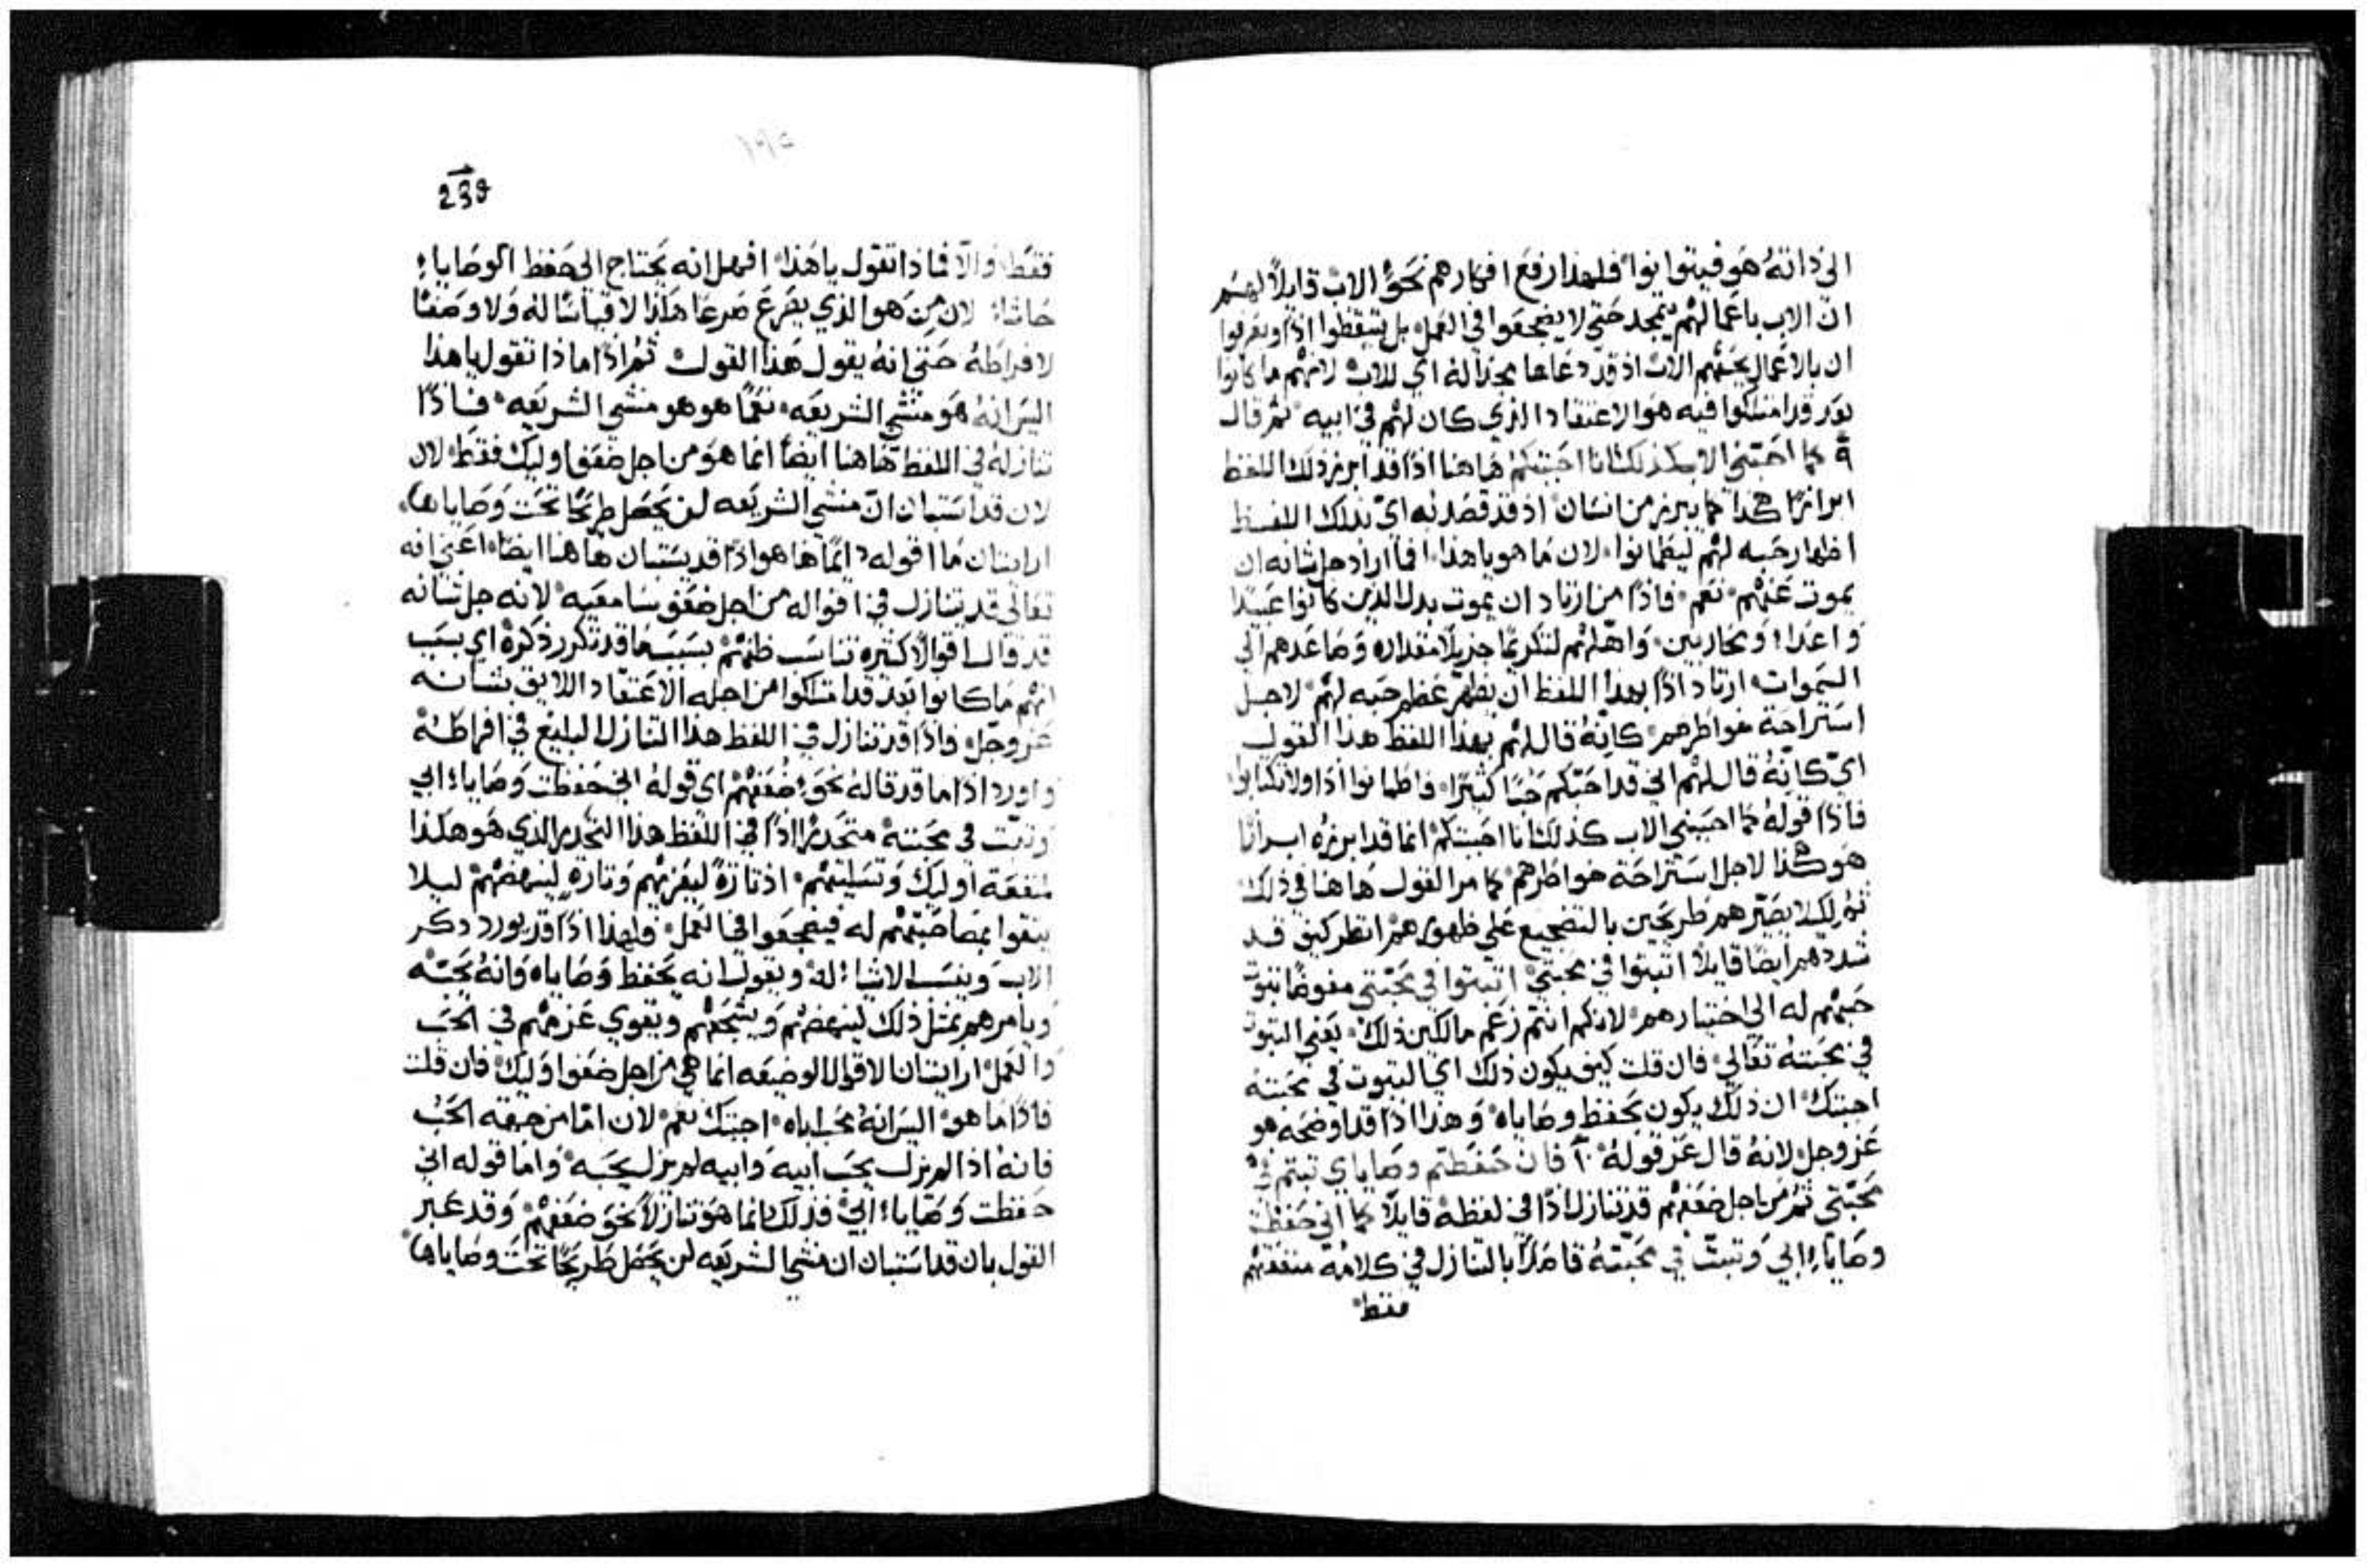 الى ذاته هو فيتوانوا فلهذا رفع افكارهم نحو الاب قايلاً لهم
ان الاب باعمالهم يتمجد حتى لا يضجعوا في العمل بل يتيقظوا اذاً ويعرفوا
ان بالاعمال يحبهم الاب اذ قد دعاها مجداً له اي للاب لانهم ما كانوا
بعد قد امتلكوا فيه هو الاعتقاد الذي كان لهم في ابيه ثم قال
٩ كما احبني الاب كذلك انا احببتكم هاهنا اذاً قد ابرز ذلك اللفظ
ابرازاً هكذا كما يبرز من انسان اذ قد قصد به اي بذلك اللفظ
اظهار حبه لهم ليطمانوا لان ما هو يا هذا افما اراد جل شانه ان
يموت عنهم نعم فاذاً من ارتاد ان يموت بدل الذين كانوا عبيداً
واعداء ومحاربين واهلهم لتكريماً جزيلاً مقداره وصاعدهم الى
السموات ارتاد اذاً بهذا اللفظ ان يظهر عظم حبه لهم لاجل
استراحة خواطرهم كانه قال لهم بهذا اللفظ هذا القول
اي كانه قال لهم اني قد احببتكم حباً كثيراً فاطمانوا اذاً ولا تكتابوا
فاذاً قوله كما احبني الاب كذلك انا احببتكم انما قد ابرزه ابرازاً
هو هكذا لاجل استراحة خواطرهم كما مر القول هاهنا في ذلك
ثم لكيلا يصيرهم طريحين بالتضجيع على ظهورهم انظر كيف قد
شددهم ايضاً قايلاً اثبتوا في محبتي اثبتوا في محبتي مفوضاً ثبوت
حبهم له الى اختيارهم لانكم انتم زعم مالكين ذلك يعني الثبوت
في محبته تعالى فان قلت كيف يكون ذلك اي الثبوت في محبته
اجبتك ان ذلك يكون بحفظ وصاياه وهذا اذاً قد اوضحه هو
عز وجل لانه قال عز قوله ١٠ فان حفظتم وصاياي ثبتم في
محبتي ثم من اجل ضعفهم قد تنازل اذاً في لفظه قايلاً كما اني حفظت
وصايا ابي وثبت في محبته قاصداً بالتنازل في كلامه منفعتهم
فقط
239
فقط والا فماذا تقول يا هذا افهل انه يحتاج الى حفظ الوصايا
حاشا لان من هو الذي يصرع صرعاً هكذا لا قياساً له ولا وصفاً
لافراطه حتى انه يقول هذا القول ثم اذاً ماذا تقول يا هذا
اليس انه هو منشي الشريعه نعماً هو هو منشي الشريعه فاذاً
تنازله في اللفظ هاهنا ايضاً انما هو من اجل ضعف اوليك فقط لان
لان قد استبان ان منشي الشريعه لن يحصل طريحاً تحت وصاياها
ارايت ان ما اقوله دائماً ها هو اذاً قد يستبان هاهنا ايضاً اعني انه
تعالى قد يتنازل في اقواله من اجل ضعف سامعيه لانه جل شانه
قد قال اقوالاً كثيره تناسب ظنهم بسبب ما قد تكرر ذكره اي بسبب
انهم ما كانوا بعد قد امتلكوا من اجله الاعتقاد اللايق بشانه
عز وجل فاذاً قد تنازل في اللفظ هذا التنازل البليغ في افراطه
واورد اذاً ما قد قاله نحو ضعفهم اي قوله اني حفظت وصايا ابي
وثبت في محبته متحدراً اذاً في اللفظ هذا التحدر الذي هو هكذا
لمنفعة اوليك وتسليتهم اذ تارةً ليعزيهم وتارةً لينهضهم ليلا
يثقوا بمصاحبتهم له فيضجعوا في العمل فلهذا اذاً قد يورد ذكر
الاب وينسب الاشياء له ويقول انه يحفظ وصاياه وانه يحبه
ويامرهم بمثل ذلك لينهضهم ويشجعهم ويقوي عزمهم في الحب
والعمل ارايت ان الاقوال الوضيعه انما هي من اجل ضعف اوليك فان قلت
فاذاً ما هو اليس انه يحب اباه اجبتك نعم لان اما من جهة الحب
فانه اذاً لم يزل يحب ابيه وابيه لم يزل يحبه واما قوله اني
حفظت وصايا ابي فذلك انما هو تنازلاً نحو ضعفهم وقد عبر
القول بان قد استبان ان منشي الشريعه لن يحصل طريحاً تحت وصاياها